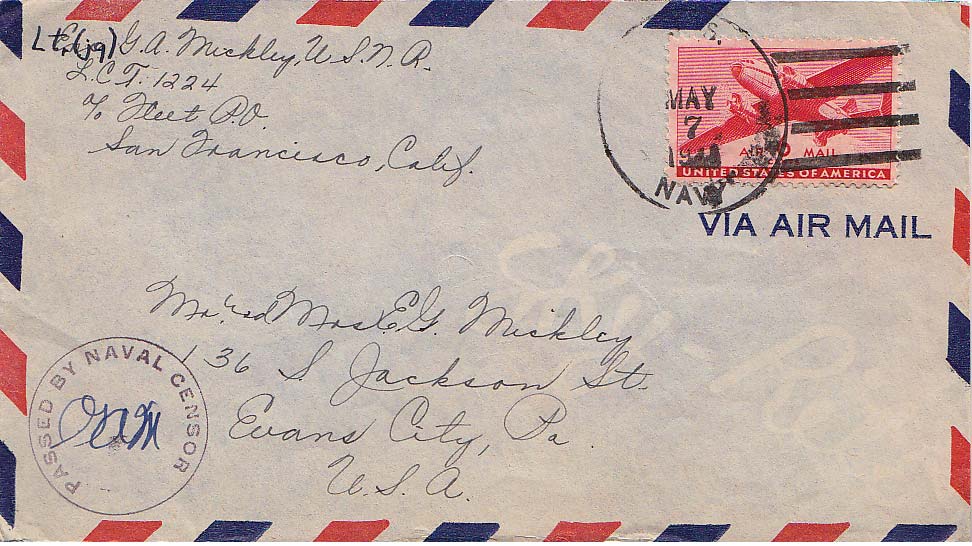 Lt.(jg) G.A. Mickley, U.S.N.R.
L.C.T. 1224
c/o Fleet P.O.
San Francisco, Calif.
U.S.
MAY
7
NAVY
AIR MAIL
UNITED STATES OF AMERICA
VIA AIR MAIL
Mr. and Mrs. E.G. Mickley
136 S. Jackson St.
Evans City, Pa.
U.S.A.
PASSED BY NAVAL CENSOR
GAM